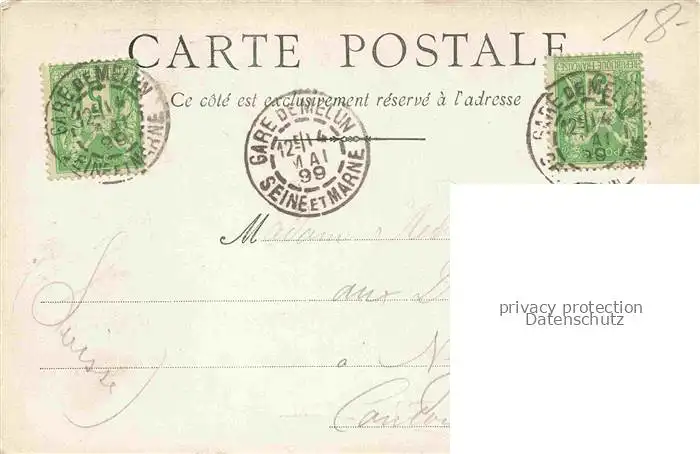 18-
CARTE POSTALE
Ce côté est exclusivement réservé à l'adresse
GARE DE MELUN
12E/14
MAI
99
SEINE ET MARNE
GARE DE MELUN
12E/14
MAI
99
SEINE ET MARNE
REPUBLIQUE FRANÇAISE
12E/14
MAI
99
Madame
aux D
à N
Suisse
privacy protection
Datenschutz